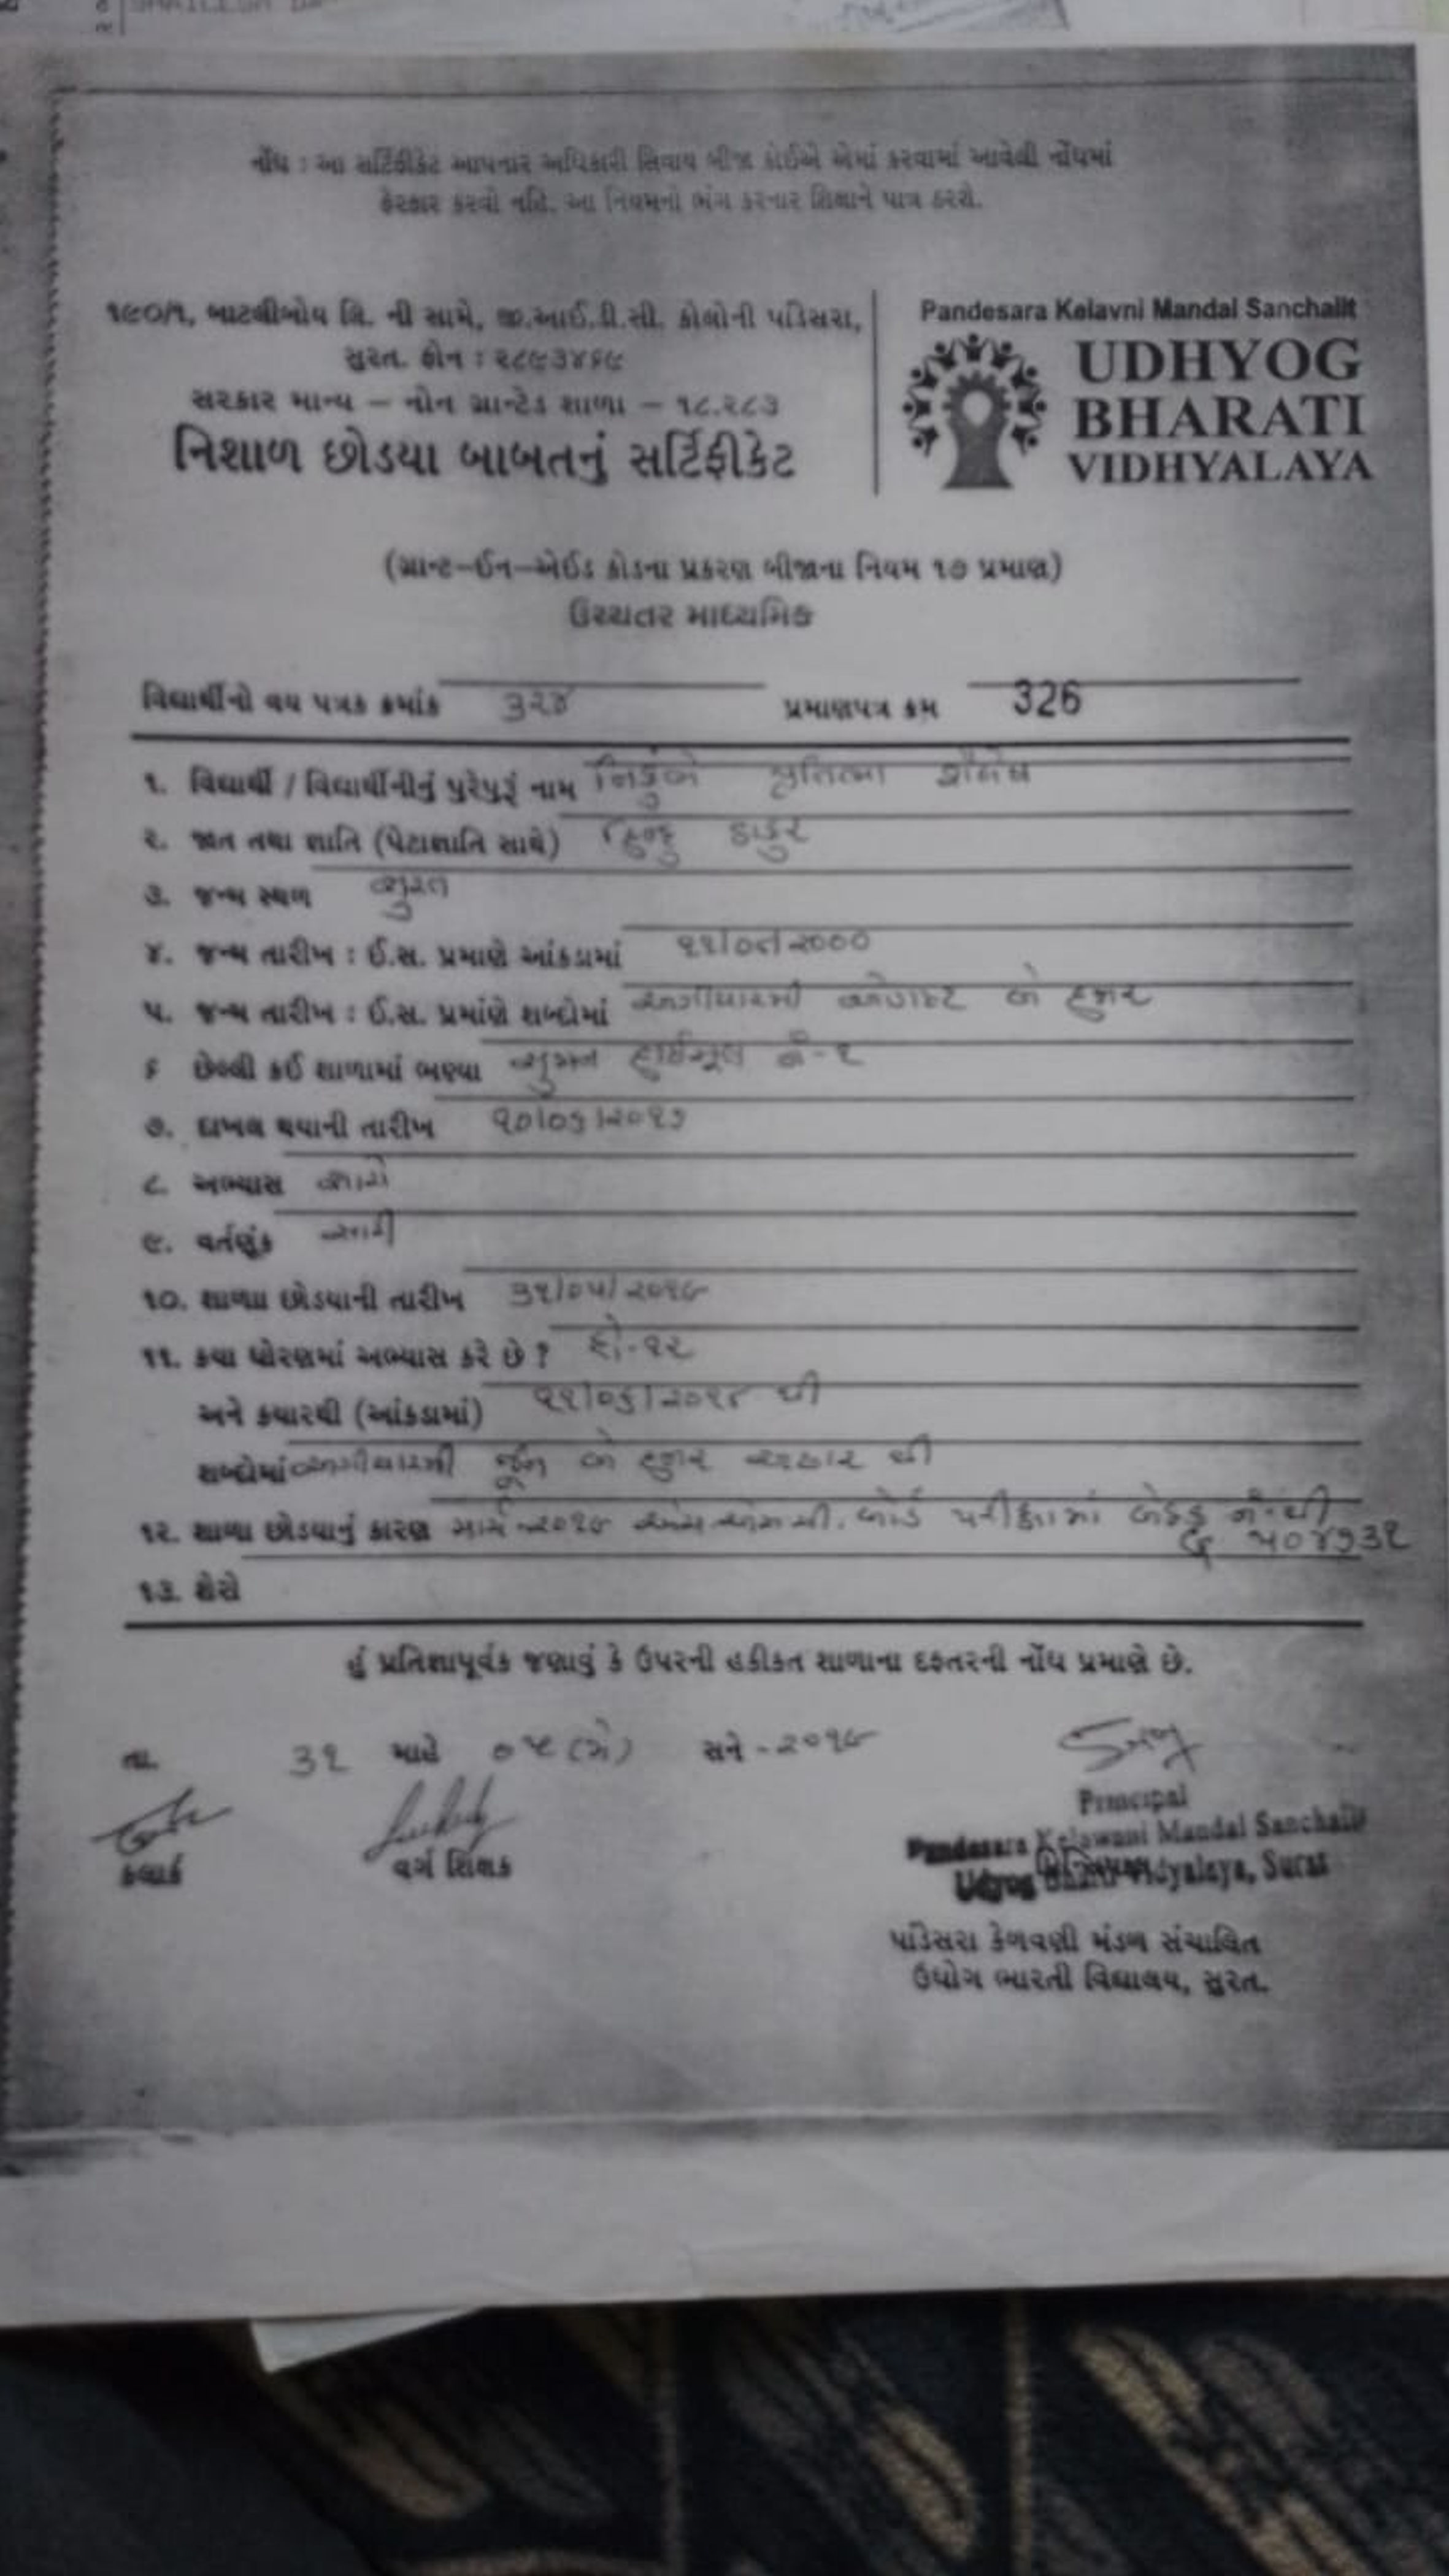 નોંધ : આ સર્ટિફીકેટ આપનાર અધિકારી સિવાય બીજા કોઈએ એમાં કરવામાં આવેલી નોંધમાં
ફેરફાર કરવો નહિ. આ નિયમનો ભંગ કરનાર શિક્ષાને પાત્ર ઠરશે.
૧૯૦/૧, બાટલીબોય લિ. ની સામે, જી.આઈ.ડી.સી. કોલોની પાંડેસરા,
સુરત. ફોન : ૨૮૯૩૪૬૯
સરકાર માન્ય – નોન ગ્રાન્ટેડ શાળા – ૧૮.૨૮૩
નિશાળ છોડયા બાબતનું સર્ટિફીકેટ
Pandesara Kelavni Mandal Sanchalit
UDHYOG
BHARATI
VIDHYALAYA
(ગ્રાન્ટ–ઈન–એઈડ કોડના પ્રકરણ બીજાના નિયમ ૧૭ પ્રમાણ)
ઉચ્ચતર માધ્યમિક
વિદ્યાર્થીનો વય પત્રક ક્રમાંક ૩૨૪ પ્રમાણપત્ર ક્રમ 326
૧. વિદ્યાર્થી / વિદ્યાર્થીનીનું પુરેપુરૂં નામ
૨. જાત તથા જ્ઞાતિ (પેટાજ્ઞાતિ સાથે) હિન્દુ ઠાકુર
૩. જન્મ સ્થળ સુરત
૪. જન્મ તારીખ : ઈ.સ. પ્રમાણે આંકડામાં
૫. જન્મ તારીખ : ઈ.સ. પ્રમાંણે શબ્દોમાં અગીયારમી ઓગસ્ટ બે હજાર
૬ છેલ્લી કઈ શાળામાં ભણ્યા સુમન હાઈસ્કૂલ નં-૧
૭. દાખલ થયાની તારીખ ૧૦/૦૬/૨૦૧૭
૮. અભ્યાસ સારો
૯. વર્તણુંક સારી
૧૦. શાળા છોડયાની તારીખ ૩૧/૦૫/૨૦૧૯
૧૧. કયા ધોરણમાં અભ્યાસ કરે છે ? ધો-૧૨
અને કયારથી (આંકડામાં) ૧૧/૦૬/૨૦૧૮ થી
શબ્દોમાં અગીયારમી જૂન બે હજાર અઢાર થી
૧૨. શાળા છોડયાનું કારણ માર્ચ-૨૦૧૯ એચ.એસ.સી. બોર્ડ પરીક્ષામાં બેઠક નં-થી
૫૦૪૭૩૧
૧૩. શેરો
હું પ્રતિજ્ઞાપૂર્વક જણાવું કે ઉપરની હકીકત શાળાના દફતરની નોંધ પ્રમાણે છે.
તા. ૩૧ માહે ૦૫ (મે) સને - ૨૦૧૯
Principal
Pandesara Kelawani Mandal Sanchalit
Udyog Bharti Vidyalaya, Surat
કલાર્ક વર્ગ શિક્ષક
પાંડેસરા કેળવણી મંડળ સંચાલિત
ઉધોગ ભારતી વિદ્યાલય, સુરત.